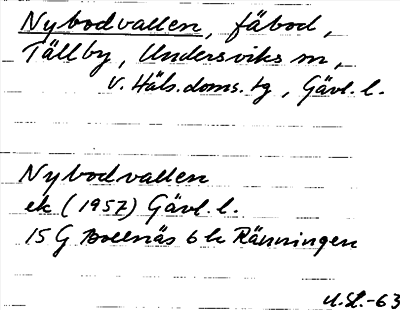 Nybodvallen, fäbod,
Tällby, Undersviks sn,
V. Häls. doms. tg, Gävl. l.
Nybodvallen
ek (1957) Gävl. l.
15 G Bollnäs 6 h Ränningen
U.L.-63